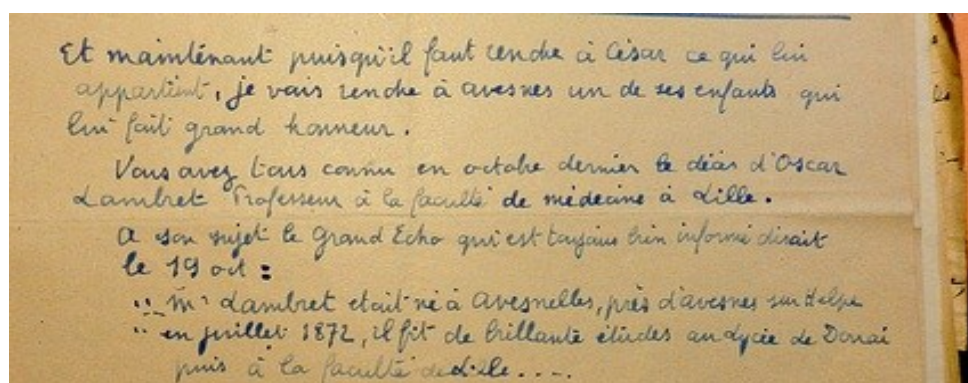 Et maintenant puisqu'il faut rendre à César ce qui lui
appartient, je vais rendre à avesnes un de ses enfants qui
lui fait grand honneur.
Vous avez tous connu en octobre dernier le décès d'Oscar
Lambret Professeur à la faculté de médecine à Lille.
A son sujet le Grand Echo qui est toujours bien informé disait
le 19 oct :
" Mr Lambret etait né à Avesnelles, près d'avesnes sur Helpe
" en juillet 1872, il fit de brillante études au Lycée de Douai
puis à la faculté de Lille....